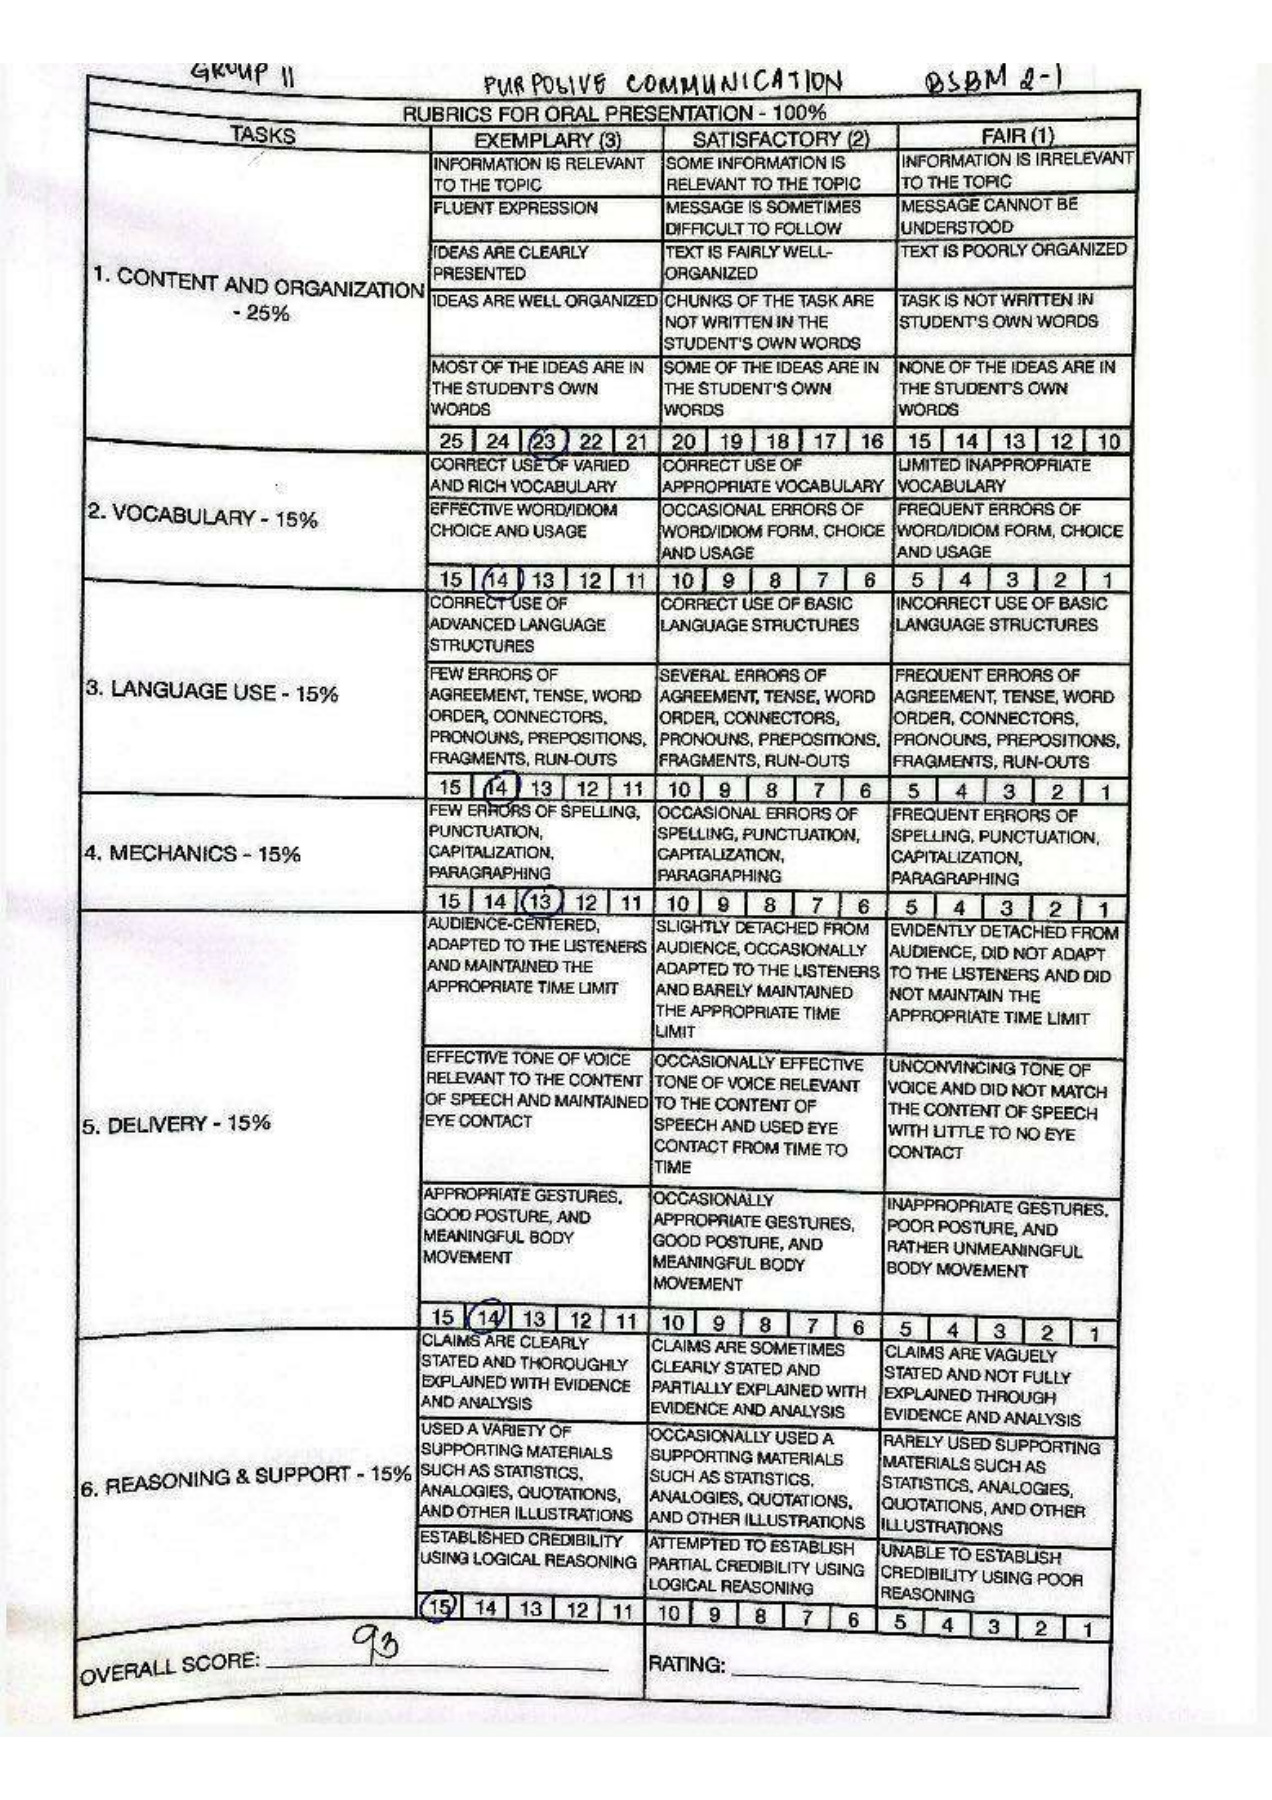 GROUP 11
PURPOLIVE COMMUNICATION
BSBM 2-1
RUBRICS FOR ORAL PRESENTATION - 100%
TASKS EXEMPLARY (3) SATISFACTORY (2) FAIR (1)
1. CONTENT AND ORGANIZATION
- 25%
INFORMATION IS RELEVANT
TO THE TOPIC
SOME INFORMATION IS
RELEVANT TO THE TOPIC
INFORMATION IS IRRELEVANT
TO THE TOPIC
FLUENT EXPRESSION
MESSAGE IS SOMETIMES
DIFFICULT TO FOLLOW
MESSAGE CANNOT BE
UNDERSTOOD
IDEAS ARE CLEARLY
PRESENTED
TEXT IS FAIRLY WELL-
ORGANIZED
TEXT IS POORLY ORGANIZED
IDEAS ARE WELL ORGANIZED
CHUNKS OF THE TASK ARE
NOT WRITTEN IN THE
STUDENT'S OWN WORDS
TASK IS NOT WRITTEN IN
STUDENT'S OWN WORDS
MOST OF THE IDEAS ARE IN
THE STUDENT'S OWN
WORDS
SOME OF THE IDEAS ARE IN
THE STUDENT'S OWN
WORDS
NONE OF THE IDEAS ARE IN
THE STUDENT'S OWN
WORDS
25 24 23 22 21 20 19 18 17 16 15 14 13 12 10
2. VOCABULARY - 15%
CORRECT USE OF VARIED
AND RICH VOCABULARY
CORRECT USE OF
APPROPRIATE VOCABULARY
LIMITED INAPPROPRIATE
VOCABULARY
EFFECTIVE WORD/IDIOM
CHOICE AND USAGE
OCCASIONAL ERRORS OF
WORD/IDIOM FORM, CHOICE
AND USAGE
FREQUENT ERRORS OF
WORD/IDIOM FORM, CHOICE
AND USAGE
15 14 13 12 11 10 9 8 7 6 5 4 3 2 1
3. LANGUAGE USE - 15%
CORRECT USE OF
ADVANCED LANGUAGE
STRUCTURES
CORRECT USE OF BASIC
LANGUAGE STRUCTURES
INCORRECT USE OF BASIC
LANGUAGE STRUCTURES
FEW ERRORS OF
AGREEMENT, TENSE, WORD
ORDER, CONNECTORS,
PRONOUNS, PREPOSITIONS,
FRAGMENTS, RUN-OUTS
SEVERAL ERRORS OF
AGREEMENT, TENSE, WORD
ORDER, CONNECTORS,
PRONOUNS, PREPOSITIONS,
FRAGMENTS, RUN-OUTS
FREQUENT ERRORS OF
AGREEMENT, TENSE, WORD
ORDER, CONNECTORS,
PRONOUNS, PREPOSITIONS,
FRAGMENTS, RUN-OUTS
15 14 13 12 11 10 9 8 7 6 5 4 3 2 1
4. MECHANICS - 15%
FEW ERRORS OF SPELLING,
PUNCTUATION,
CAPITALIZATION,
PARAGRAPHING
OCCASIONAL ERRORS OF
SPELLING, PUNCTUATION,
CAPITALIZATION,
PARAGRAPHING
FREQUENT ERRORS OF
SPELLING, PUNCTUATION,
CAPITALIZATION,
PARAGRAPHING
15 14 13 12 11 10 9 8 7 6 5 4 3 2 1
5. DELIVERY - 15%
AUDIENCE-CENTERED,
ADAPTED TO THE LISTENERS
AND MAINTAINED THE
APPROPRIATE TIME LIMIT
SLIGHTLY DETACHED FROM
AUDIENCE, OCCASIONALLY
ADAPTED TO THE LISTENERS
AND BARELY MAINTAINED
THE APPROPRIATE TIME
LIMIT
EVIDENTLY DETACHED FROM
AUDIENCE, DID NOT ADAPT
TO THE LISTENERS AND DID
NOT MAINTAIN THE
APPROPRIATE TIME LIMIT
EFFECTIVE TONE OF VOICE
RELEVANT TO THE CONTENT
OF SPEECH AND MAINTAINED
EYE CONTACT
OCCASIONALLY EFFECTIVE
TONE OF VOICE RELEVANT
TO THE CONTENT OF
SPEECH AND USED EYE
CONTACT FROM TIME TO
TIME
UNCONVINCING TONE OF
VOICE AND DID NOT MATCH
THE CONTENT OF SPEECH
WITH LITTLE TO NO EYE
CONTACT
APPROPRIATE GESTURES,
GOOD POSTURE, AND
MEANINGFUL BODY
MOVEMENT
OCCASIONALLY
APPROPRIATE GESTURES,
GOOD POSTURE, AND
MEANINGFUL BODY
MOVEMENT
INAPPROPRIATE GESTURES,
POOR POSTURE, AND
RATHER UNMEANINGFUL
BODY MOVEMENT
15 14 13 12 11 10 9 8 7 6 5 4 3 2 1
6. REASONING & SUPPORT - 15%
CLAIMS ARE CLEARLY
STATED AND THOROUGHLY
EXPLAINED WITH EVIDENCE
AND ANALYSIS
CLAIMS ARE SOMETIMES
CLEARLY STATED AND
PARTIALLY EXPLAINED WITH
EVIDENCE AND ANALYSIS
CLAIMS ARE VAGUELY
STATED AND NOT FULLY
EXPLAINED THROUGH
EVIDENCE AND ANALYSIS
USED A VARIETY OF
SUPPORTING MATERIALS
SUCH AS STATISTICS,
ANALOGIES, QUOTATIONS,
AND OTHER ILLUSTRATIONS
OCCASIONALLY USED A
SUPPORTING MATERIALS
SUCH AS STATISTICS,
ANALOGIES, QUOTATIONS,
AND OTHER ILLUSTRATIONS
RARELY USED SUPPORTING
MATERIALS SUCH AS
STATISTICS, ANALOGIES,
QUOTATIONS, AND OTHER
ILLUSTRATIONS
ESTABLISHED CREDIBILITY
USING LOGICAL REASONING
ATTEMPTED TO ESTABLISH
PARTIAL CREDIBILITY USING
LOGICAL REASONING
UNABLE TO ESTABLISH
CREDIBILITY USING POOR
REASONING
15 14 13 12 11 10 9 8 7 6 5 4 3 2 1
OVERALL SCORE: 93
RATING: